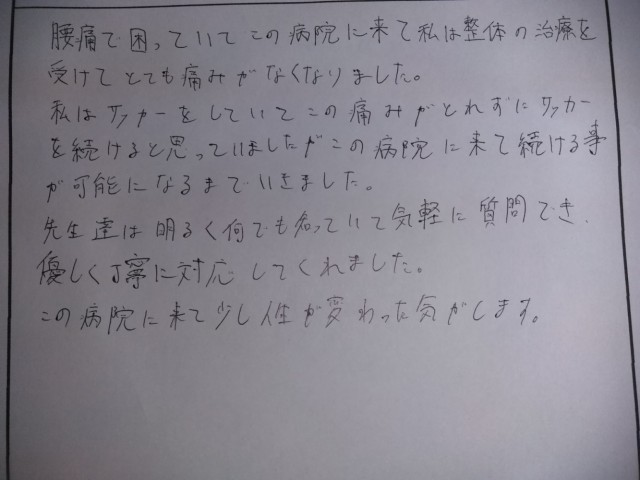 腰痛で困っていてこの病院に来て私は整体の治療を
受けてとても痛みがなくなりました。
私はサッカーをしていてこの痛みがとれずにサッカー
を続けると思っていましたがこの病院に来て続ける事
が可能になるまでいきました。
先生達は明るく何でも知っていて気軽に質問でき、
優しく丁寧に対応してくれました。
この病院に来て少し人生が変わった気がします。